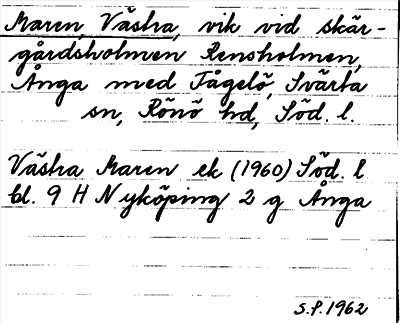 Maren, Västra, vik vid skär-
gårdsholmen Rensholmen,
Ånga med Fågelö, Svärta
sn, Rönö hd, Söd. l.
Västra Maren ek (1960) Söd. l
bl. 9 H Nyköping 2 g Ånga
S.P. 1962